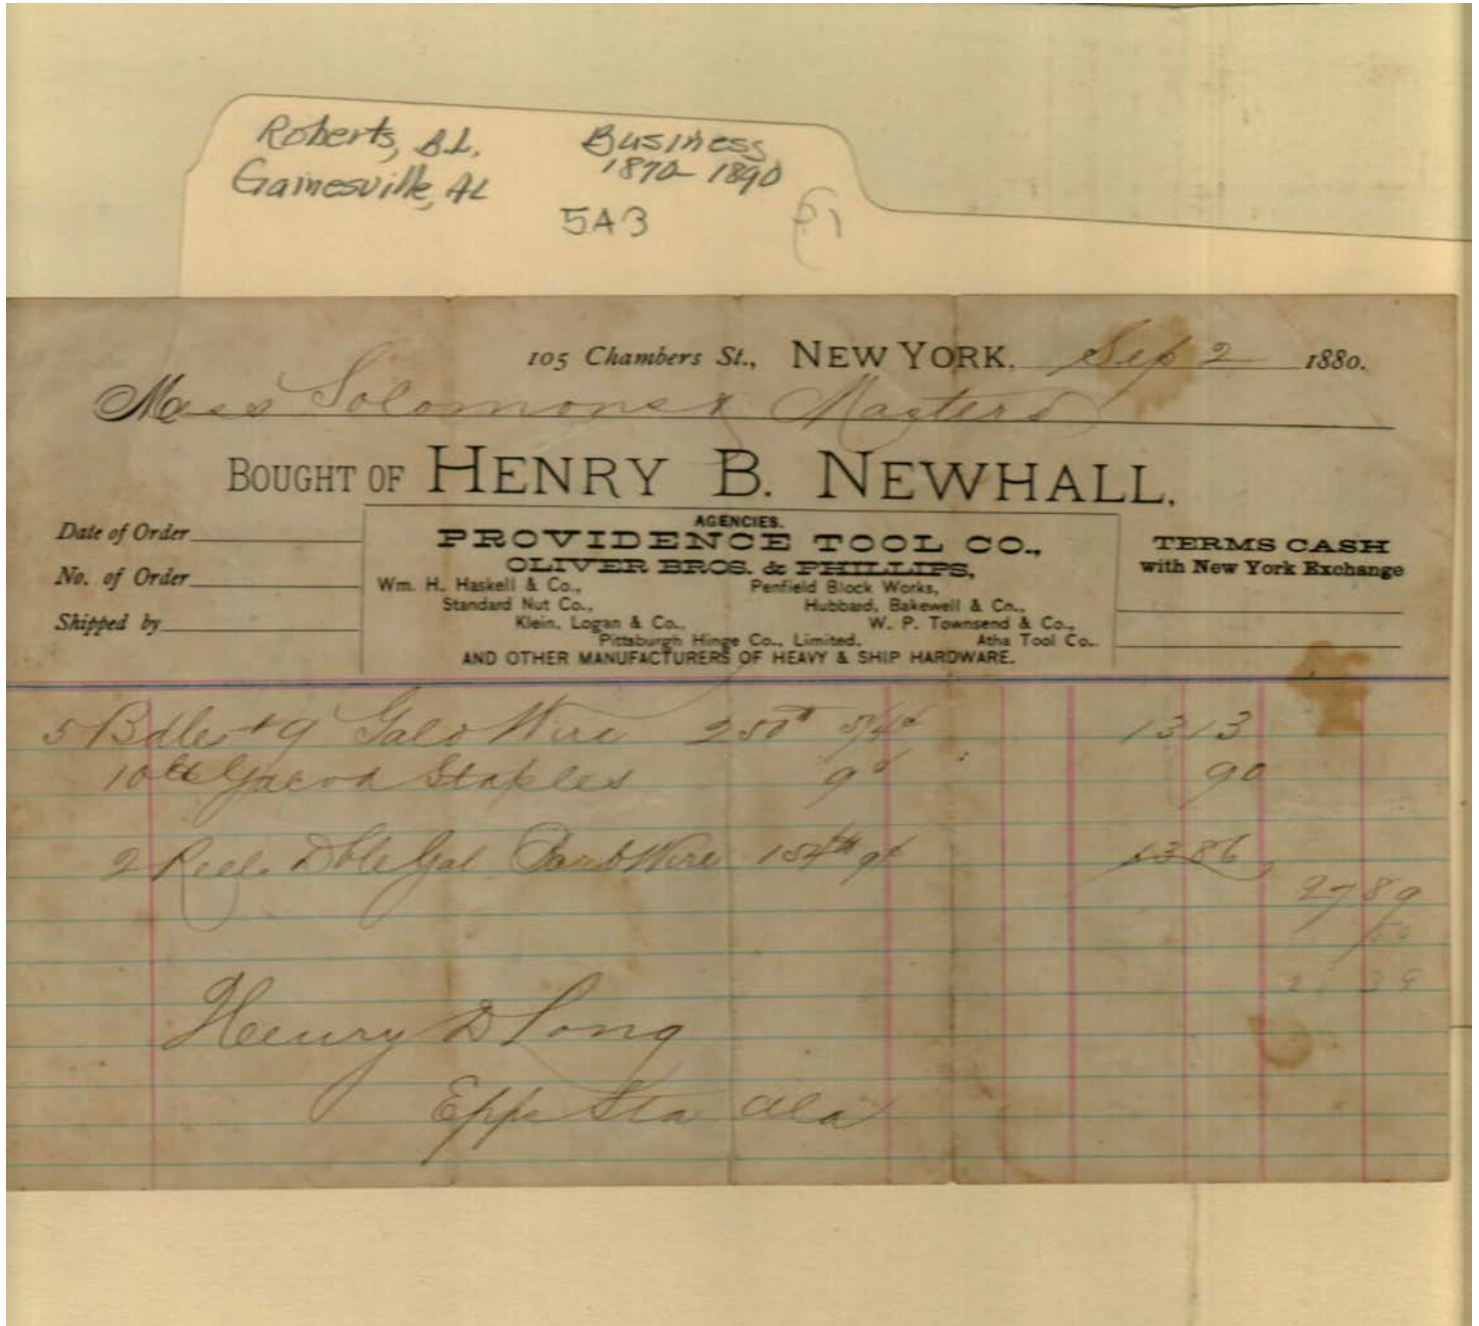 Roberts, B.L. Business
Gainesville, AL 1870-1890
5A3
105 Chambers St., NEW YORK, Sep 2 1880.
Mess Solomons & Masters
BOUGHT OF HENRY B. NEWHALL.
Date of Order
No. of Order
Shipped by
AGENCIES.
PROVIDENCE TOOL CO.,
OLIVER BROS. & PHILLIPS,
Wm. H. Haskell & Co., Penfield Block Works,
Standard Nut Co., Hubbard, Bakewell & Co.,
Klein, Logan & Co., W. P. Townsend & Co.,
Pittsburgh Hinge Co., Limited, Atha Tool Co.,
AND OTHER MANUFACTURERS OF HEAVY & SHIP HARDWARE.
TERMS CASH
with New York Exchange
5 Bdls #9 Galv Wire 250# 5 1/4¢ 1313
10 Staples 9¢ 90
2 Reels Dble Gal Barb Wire 154# 9¢ 1386
2789
50
2 39
Henry D Long
Epps Sta Ala